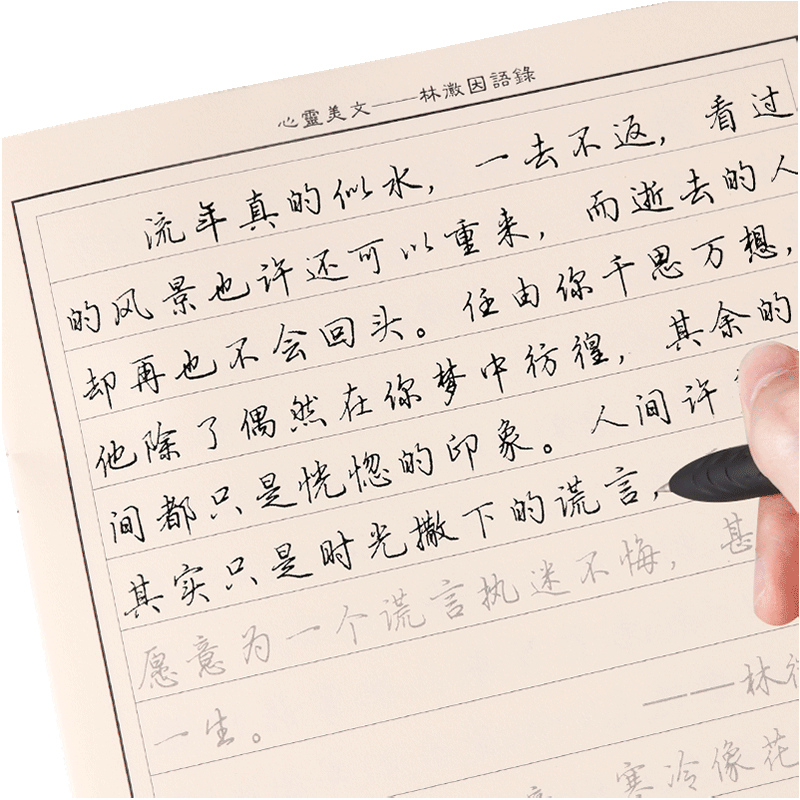 心靈美文——林徽因語錄
流年真的似水，一去不返，看过
的风景也许还可以重来，而逝去的人
却再也不会回头。任由你千思万想，
他除了偶然在你梦中彷徨，其余的
间都只是恍惚的印象。人间许
其实只是时光撒下的谎言，
愿意为一个谎言执迷不悔，甚
一生。
——林徽
寒冷像花